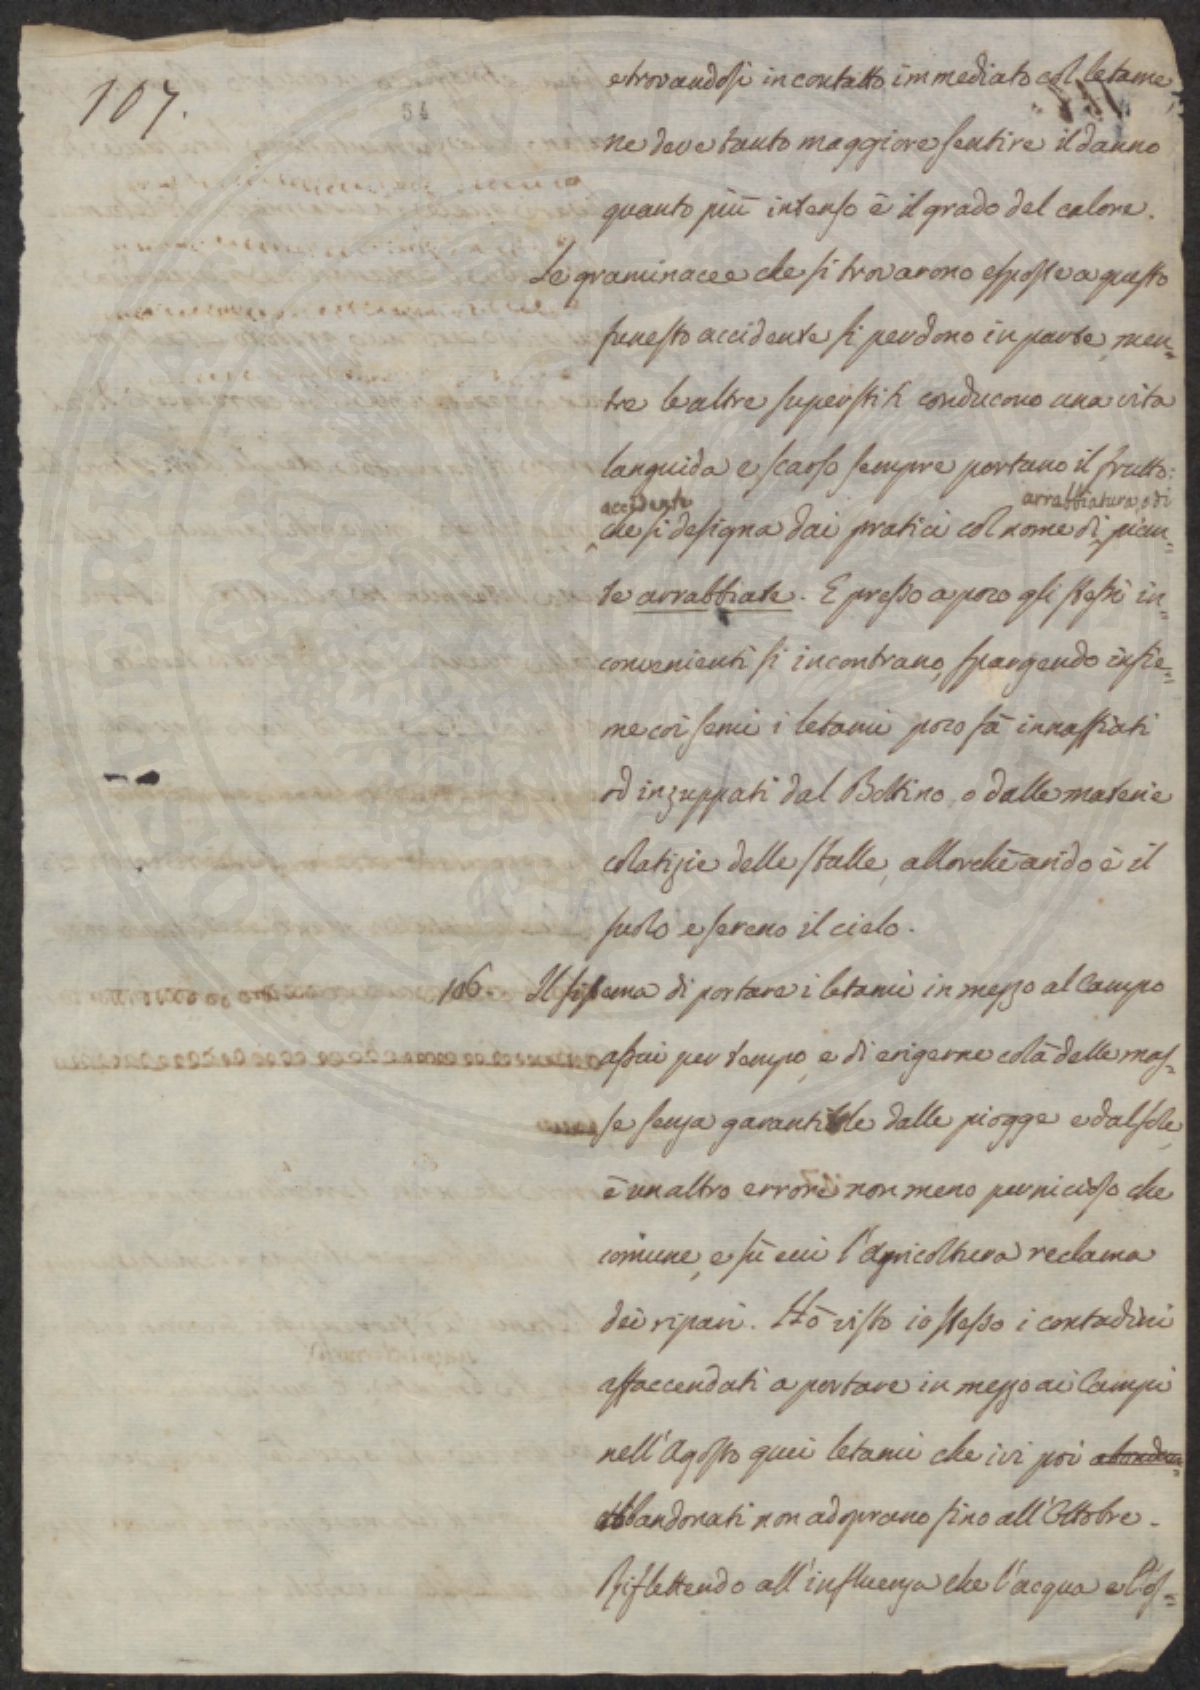 107.
54
e trovandosi in contatto immediato col letame,
ne deve tanto maggiore sentire il danno
quanto più intenso è il grado del calore.
Le graminacee che si trovarono esposte a questo
funesto accidente si perdono in parte, men=
tre le altre superstiti conducono una vita
languida e scarso sempre portano il frutto:
accidente arrabbiatura, o di
che si designa dai pratici col nome di pian=
te arrabbiate. E presso a poco gli stessi in=
convenienti si incontrano, spargendo insie=
me coi semi i letami poco fà innaffiati
od inzuppati dal Bottino, o dalle materie
colatizie delle stalle, allorchè arido è il
suolo e sereno il cielo.
106. Il sistema di portare i letami in mezzo al Campo
assai per tempo, e di erigerne colà delle mas=
se senza garantirle dalle piogge e dal sole,
è un altro errore non meno pernicioso che
comune, e sù cui l'Agricoltura reclama
dei ripari. Hò visto io stesso i contadini
affaccendati a portare in mezzo ai Campi
nell'Agosto quei letami che ivi poi abandon=
abbandonati non adoprano fino all'Ottobre.
Riflettendo all'influenza che l'acqua e l'os=